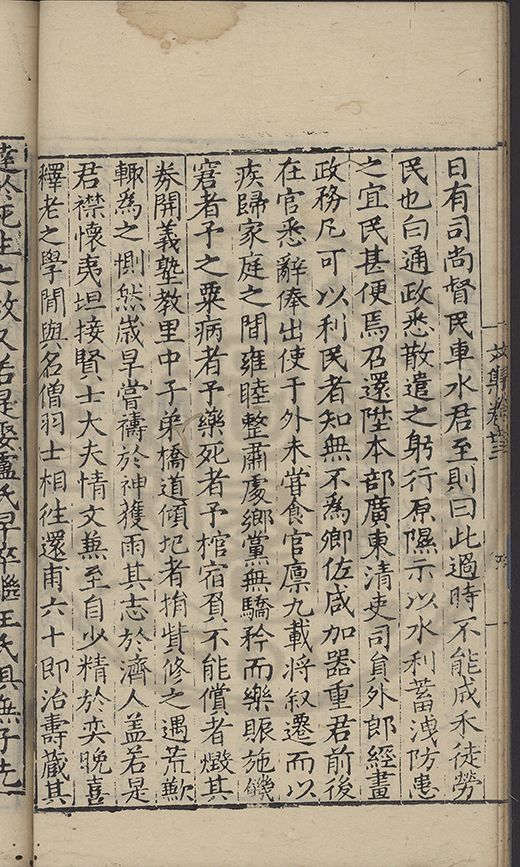 日有司尚督民車水君至則曰此過時不能成禾徒勞
民也白通政悉散遣之躬行原隰示以水利蓄洩防患
之宜民甚便焉召還陞本部廣東清吏司員外郎經畫
政務凡可以利民者知無不為卿佐咸加器重君前後
在官悉辭俸出使于外未嘗食官廩九載將叙遷而以
疾歸家庭之間雍睦整肅處鄉黨無驕矜而樂賑施饑
窘者予之粟病者予藥死者予棺宿負不能償者燬其
券開義塾教里中子弟橋道傾圮者捐貲修之遇荒歉
輒為之惻然歲旱嘗禱於神獲雨其志於濟人盖若是
君襟懷夷坦接賢士大夫情文兼至自少精於奕晚喜
釋老之學間與名僧羽士相往還甫六十即治壽藏其
達於死生之故又若是娶盧氏早卒繼王氏具無子先
文集卷